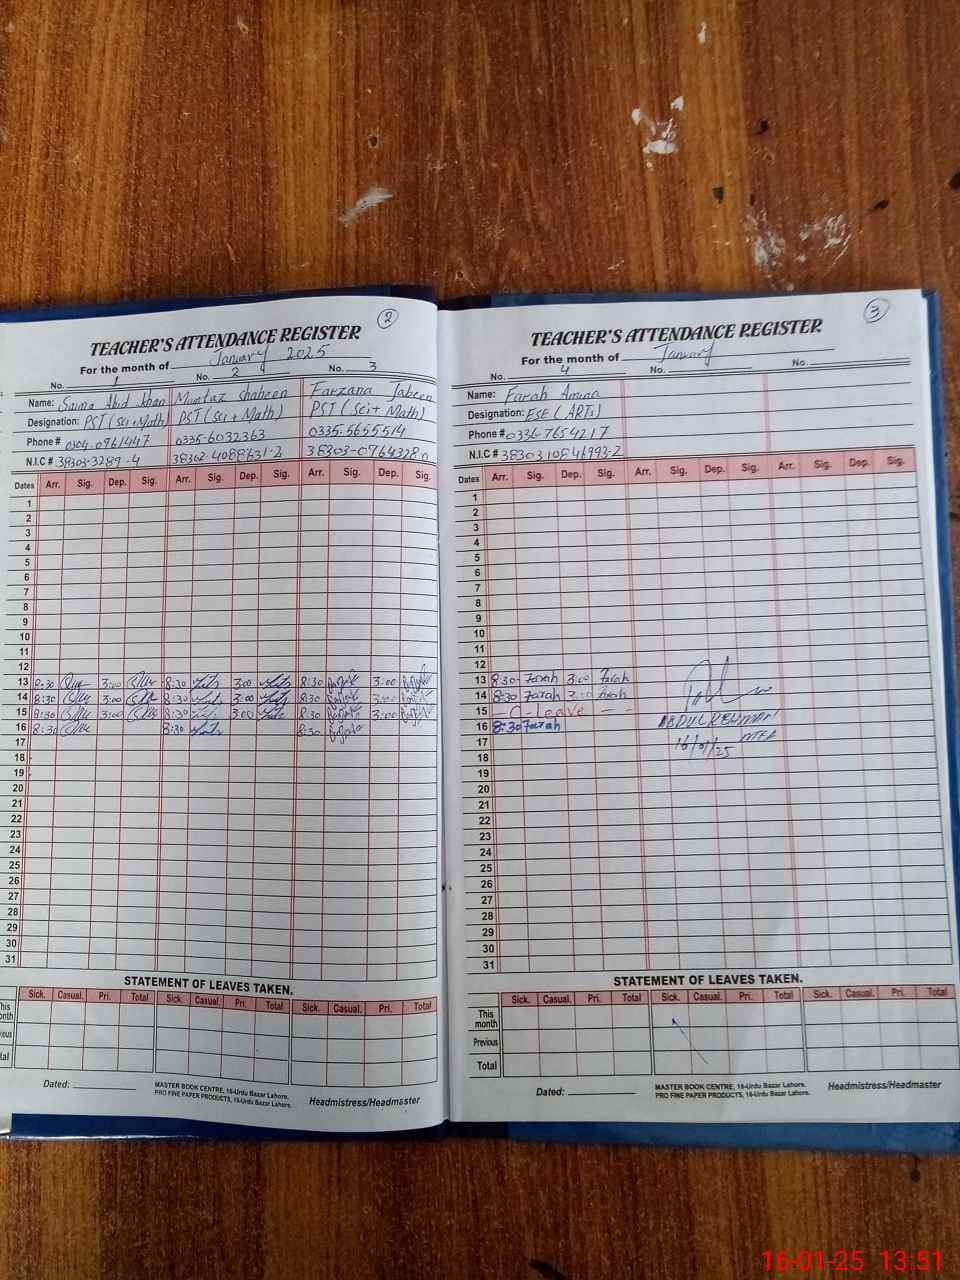 2
TEACHER'S ATTENDANCE REGISTER
For the month of January 2025
No. 1 No. 2 No. 3
Name: Saima Abid Khan Mumtaz Shaheen Farzana Jabeen
Designation: PST (Sci+Math) PST (Sci+Math) PST (Sci+Math)
Phone # 0304-0961447 0335-6032363 0335-5655514
N.I.C # 38303-3289-4 38302-4088631-2 38303-0964328
Dates Arr. Sig. Dep. Sig. Arr. Sig. Dep. Sig. Arr. Sig. Dep. Sig.
1
2
3
4
5
6
7
8
9
10
11
12
13 8:30 3:00 8:30 3:00 8:30 3:00
14 8:30 3:00 8:30 3:00 8:30 3:00
15 8:30 3:00 8:30 3:00 8:30 3:00
16 8:30 8:30 8:30
17
18
19
20
21
22
23
24
25
26
27
28
29
30
31
STATEMENT OF LEAVES TAKEN.
Sick. Casual. Pri. Total Sick. Casual. Pri. Total Sick. Casual. Pri. Total
Dated:
MASTER BOOK CENTRE, 16-Urdu Bazar Lahore.
PRO FINE PAPER PRODUCTS, 16-Urdu Bazar Lahore.
Headmistress/Headmaster
3
TEACHER'S ATTENDANCE REGISTER
For the month of January
No. 4 No. No.
Name: Farah Amina
Designation: ESE (ARTS)
Phone # 0336-7654217
N.I.C # 3830310846993-2
Dates Arr. Sig. Dep. Sig. Arr. Sig. Dep. Sig. Arr. Sig. Dep. Sig.
1
2
3
4
5
6
7
8
9
10
11
12
13 8:30 Farah 3:00 Farah
14 8:30 Farah 3:00 Farah
15 - C-leave - -
16 8:30 Farah
ABDUL REHMAN
MEA
16/01/25
17
18
19
20
21
22
23
24
25
26
27
28
29
30
31
STATEMENT OF LEAVES TAKEN.
Sick. Casual. Pri. Total Sick. Casual. Pri. Total Sick. Casual. Pri. Total
This month
Previous
Total
Dated:
MASTER BOOK CENTRE, 16-Urdu Bazar Lahore.
PRO FINE PAPER PRODUCTS, 16-Urdu Bazar Lahore.
Headmistress/Headmaster
16-01-25 13:51